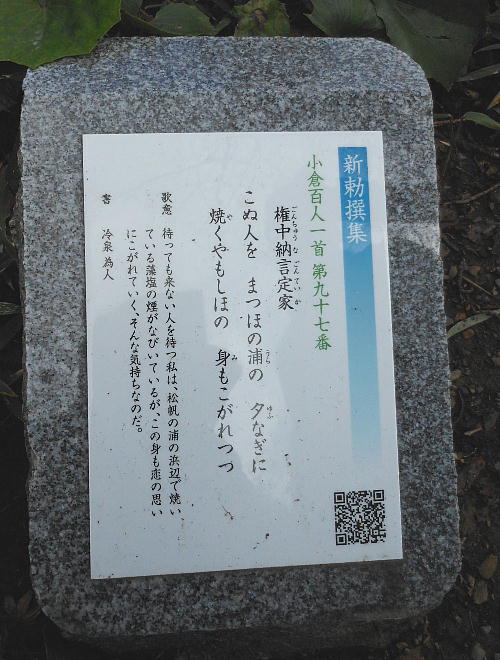 新勅撰集
小倉百人一首 第九十七番
権中納言定家
ごんちゅう な ごんていか
こぬ人を まつほの浦の 夕なぎに
うら
ゆふ
焼くやもしほの 身もこがれつつ
や
み
歌意 待っても来ない人を待つ私は、松帆の浦の浜辺で焼い
ている藻塩の煙がなびいているが、この身も恋の思い
にこがれていく、そんな気持ちなのだ。
書 冷泉為人